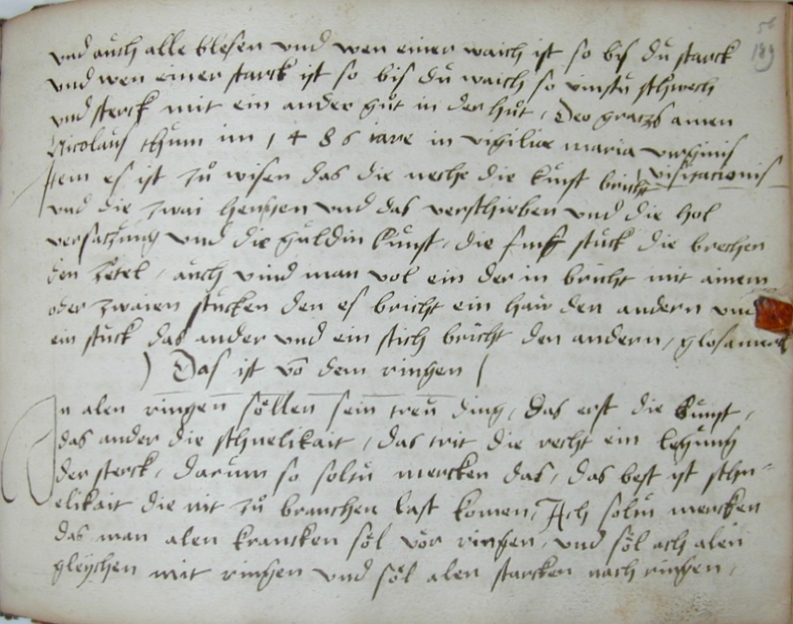 56
189
vnd auch alle blesen vnd wen einer waich ist so bis du starck
vnd wen einer starck ist so bis du waich so vinstu schwech
vnd sterck mit ein ander gut in der hut, Deo gratias amen
Nicolaus thum im 1486 iare in vigilia maria virginis
visitacionis
Item es ist zu wisen das die neche die kunst bricht
vnd die zwai hengen vnd das verschieben vnd die hol
versaczung vnd die guldin kunst, die funff stuck die brechen
den zetel, auch vind man wol ein der in bricht mit ainem
oder zwaien stucken den es bricht ein haw den andern vnd
ein stuck das ander vnd ein stich bricht den andern, glosa merck
) Das ist vo dem ringen (
In alen ringen söllen sein treu ding, das erst die kunst,
das ander die schnelikait, das trit die recht ein legung
der sterck, darum so soltu mercken das, das best ist schn=
elikait die nit zu bruchen last komen, Ach soltu mercken
das man alen krancken söl vor ringen, vnd söl ach alen
gleychen mit ringen vnd söl alen starcken nach ringen,